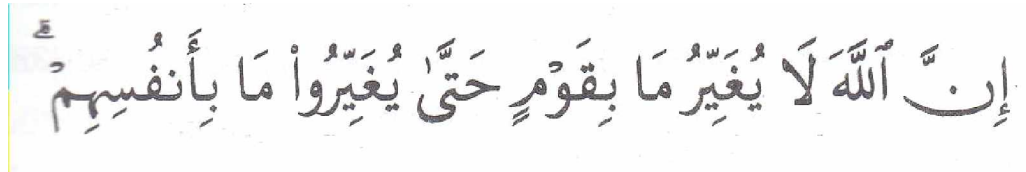 إِنَّ ٱللَّهَ لَا يُغَيِّرُ مَا بِقَوۡمٍ حَتَّىٰ يُغَيِّرُواْ مَا بِأَنفُسِهِمۡۗ